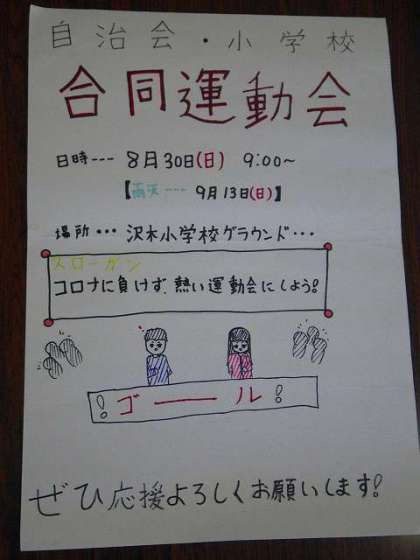 自治会・小学校
合同運動会
日時--- 8月30日(日) 9:00~
【雨天--- 9月13日(日)】
場所・・・ 沢木小学校グラウンド・・・
スローガン
コロナに負けず、熱い運動会にしよう!
! ゴール !
ぜひ応援よろしくお願いします!